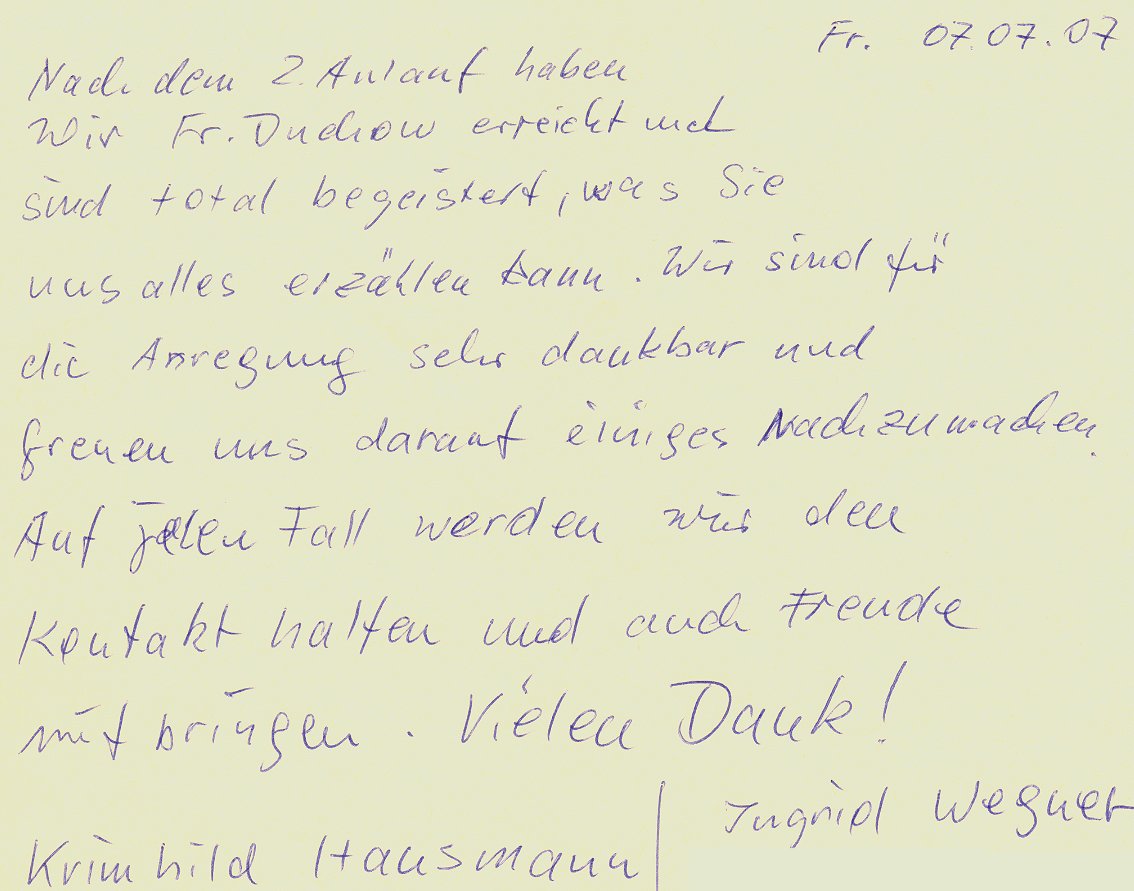 Fr. 07.07.07
Nach dem 2. Anlauf haben
Wir Fr. Duchow erreicht und
sind total begeistert, was Sie
uns alles erzählen kann. Wir sind für
die Anregung sehr dankbar und
freuen uns darauf einiges Nachzumachen.
Auf jeden Fall werden wir den
Kontakt halten und auch Freude
mit bringen. Vielen Dank!
Krimhild Hausmann / Ingrid Wegner